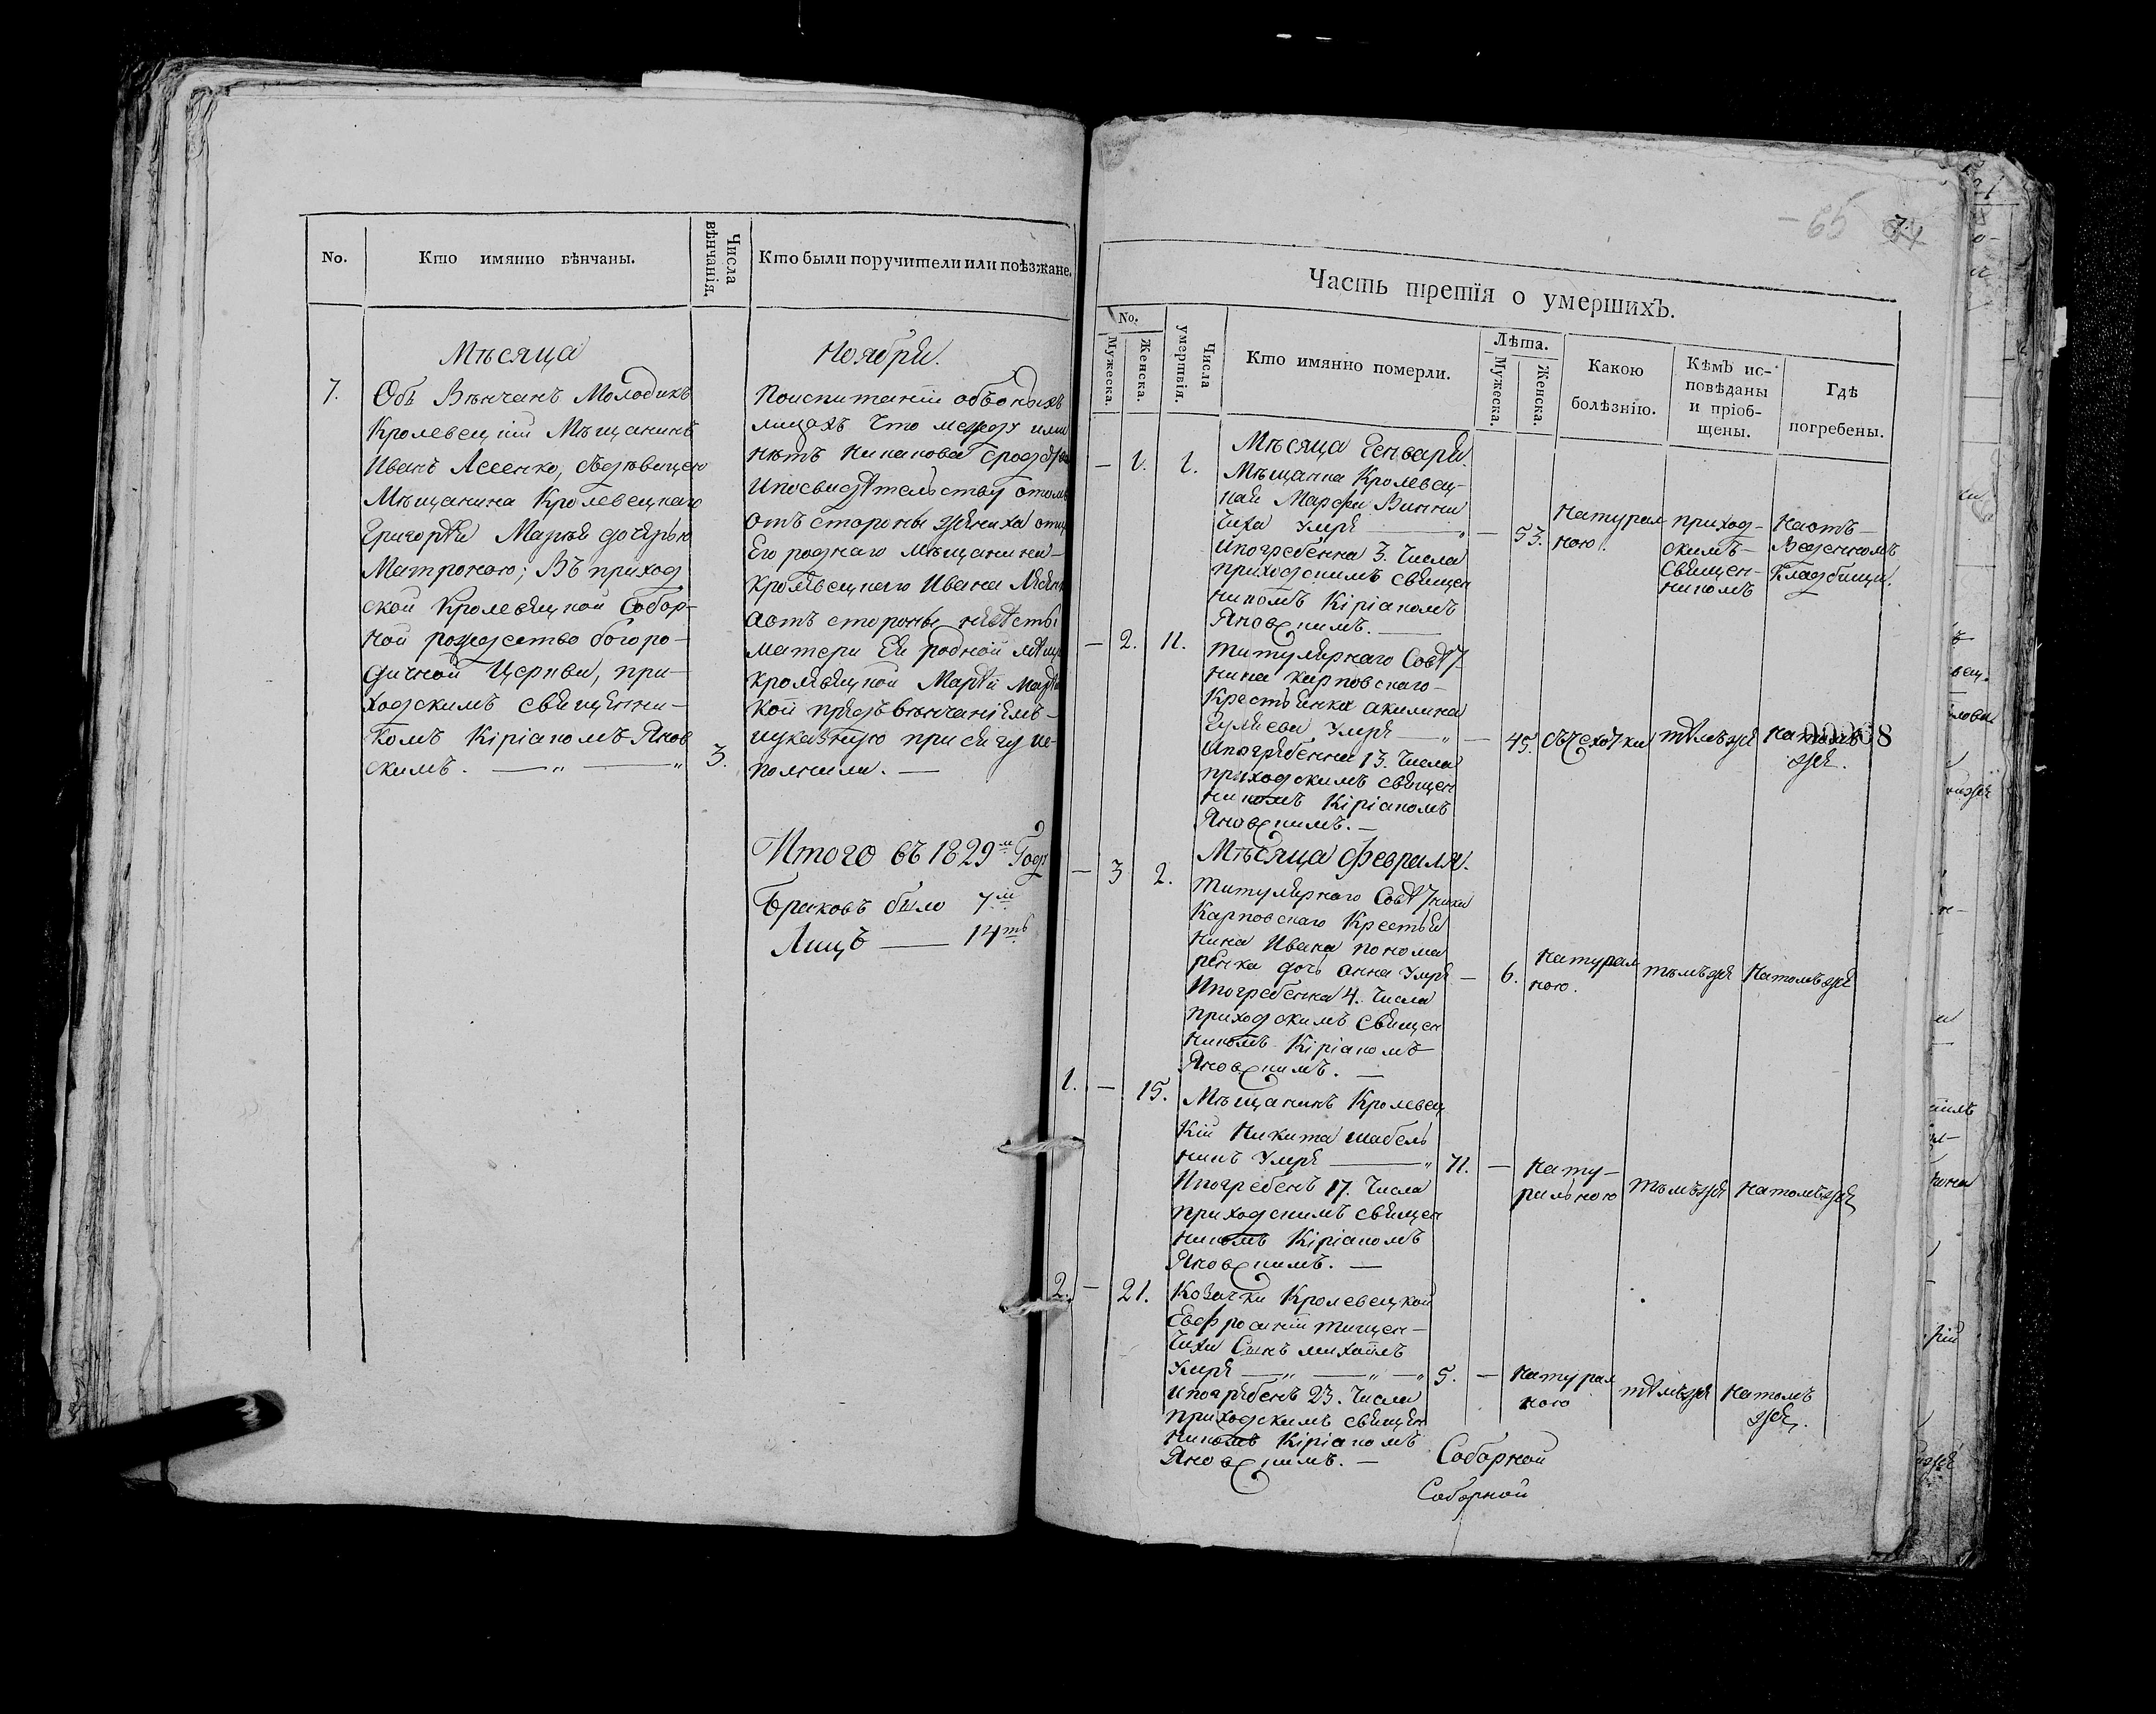 No.
Кто имянно вѣнчаны.
Числа вѣнчанія.
Кто были поручители или поѣзжане.
Мѣсяца
Ноября.
7.
Объ Вѣнчанъ Молодикъ
Кролевецкій Мѣщанинъ
Иванъ Лесенко, Здѣвицею
Мѣщанина Кролевецкаго
Григорѣя дочерью
Матроною; Въ приход
ской Кролевецкой Собор-
ной рождество богоро-
дичной Церкви, при-
ходскимъ священни-
комъ Кіріакомъ Янов
скимъ.
3.
Поиспитаніи обоихъ
лицахъ Что между ими
нѣтъ Никакова сродства
Ипосвидѣтельству отомъ
отъ стороны жениха отца
Его роднаго мѣщанина
кролевецкаго Ивана
Аотъ стороны невѣсты
матери Ея родной мѣщан
кролевецкой Марѣи
кой предъ вѣнчаніемъ
указную присягу ис-
полнили.
Итого въ 1829м Году
Браковъ было 7м
Лицъ — 14ть
65
Часть третія о умершихъ.
No.
Мужеска.
Женска.
Числа умертвія.
Кто имянно померли.
Лѣта.
Мужеска.
Женска.
Какою болѣзнію.
Кѣмъ ис-
повѣданы
и пріоб-
щены.
Гдѣ
погребены.
Мѣсяца Генваря.
— 1. 1.
Мѣщанка Кролевец-
кая Марфа Винни
чиха Умре — 53.
Ипогребенна 3. Числа
приходскимъ священ
никомъ Кіріакомъ
Яновскимъ.
Натурал
ною.
приход-
скимъ
священ-
никомъ
Наотъ-
Веденномъ
Кладбищи.
— 2. 11.
Титулярнаго Совѣт
ника Карповскаго
Крестьянка акилина
Гуляева Умре — 45.
Ипогребенна 13. Числа
приходскимъ священ
никомъ Кіріакомъ
Яновскимъ.
тѣмъже
Натомъ
же.
Мѣсяца февраля.
— 3 2.
Титулярнаго Совѣтника
Карповскаго Крестья
нина Ивана понома
ренка дочь анна Умре — 6.
Ипогребенна 4. Числа
приходскимъ священ
никомъ Кіріакомъ
Яновскимъ.
Натурал
ною.
тѣмъже
Натомъже
1. — 15.
Мѣщанинъ Кролевец
кій Никита шабель
никъ Умре 71. —
Ипогребенъ 17. Числа
приходскимъ священ
никомъ Кіріакомъ
Яновскимъ.
Нату-
ральною
тѣмъже
Натомъже
2. — 21.
Козачки Кролевецкой
Евфросиніи тищен-
чихи Синъ михаилъ
Умре 5. —
Ипогребенъ 23. Числа
приходскимъ священ
никомъ Кіріакомъ
Яновскимъ.
Натурал
ною
тѣмъже
Натомъ
же.
Соборной
Соборной